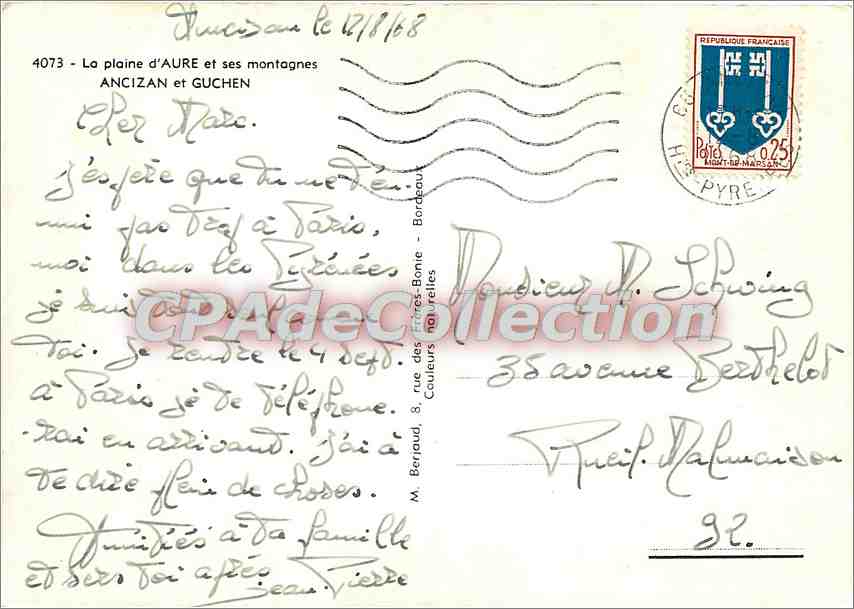 Ancizan le 12/8/68
4073 - La plaine d'AURE et ses montagnes
ANCIZAN et GUCHEN
Cher Marc.
J'espère que tu ne t'en-
nui pas trop à Paris,
moi dans les Pyrénées
je suis tout seul comme
toi. Je rentre le 4 sept.
à Paris je te téléphone-
rai en arrivant. J'ai à
te dire plein de choses.
Amitiés à ta famille
et
Jean-Pierre
M. Berjaud, 8, rue des Frères-Bonie - Bordeaux
Couleurs naturelles
REPUBLIQUE FRANÇAISE
POSTES 0,25
MONT-DE-MARSAN
Htes PYRENEES
Monsieur M. Schwing
35 avenue Berthelot
Rueil-Malmaison
92.
CPAdeCollection